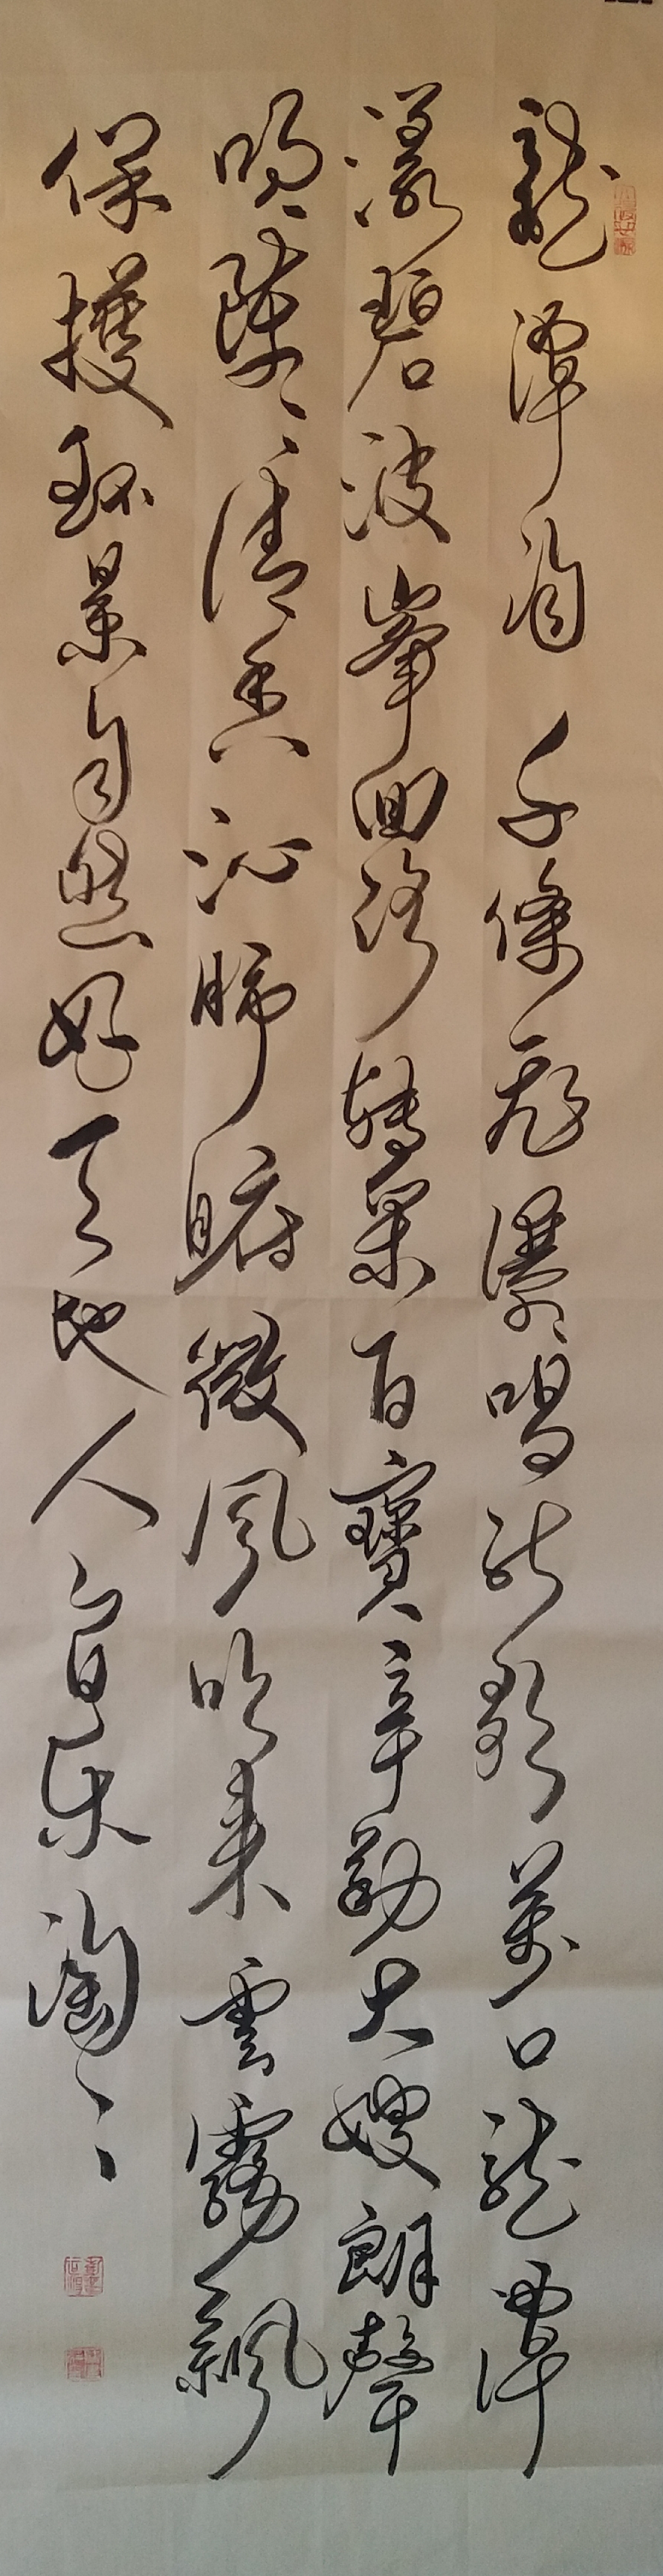 龍潭 千條飛瀑唱歌萬口龍潭
漾碧波峯回路轉百寶辛勤大嫂朗聲
陣陣清香沁脾腑微風吹來雲霧飄
保護环景自然好天地人皆樂淘淘